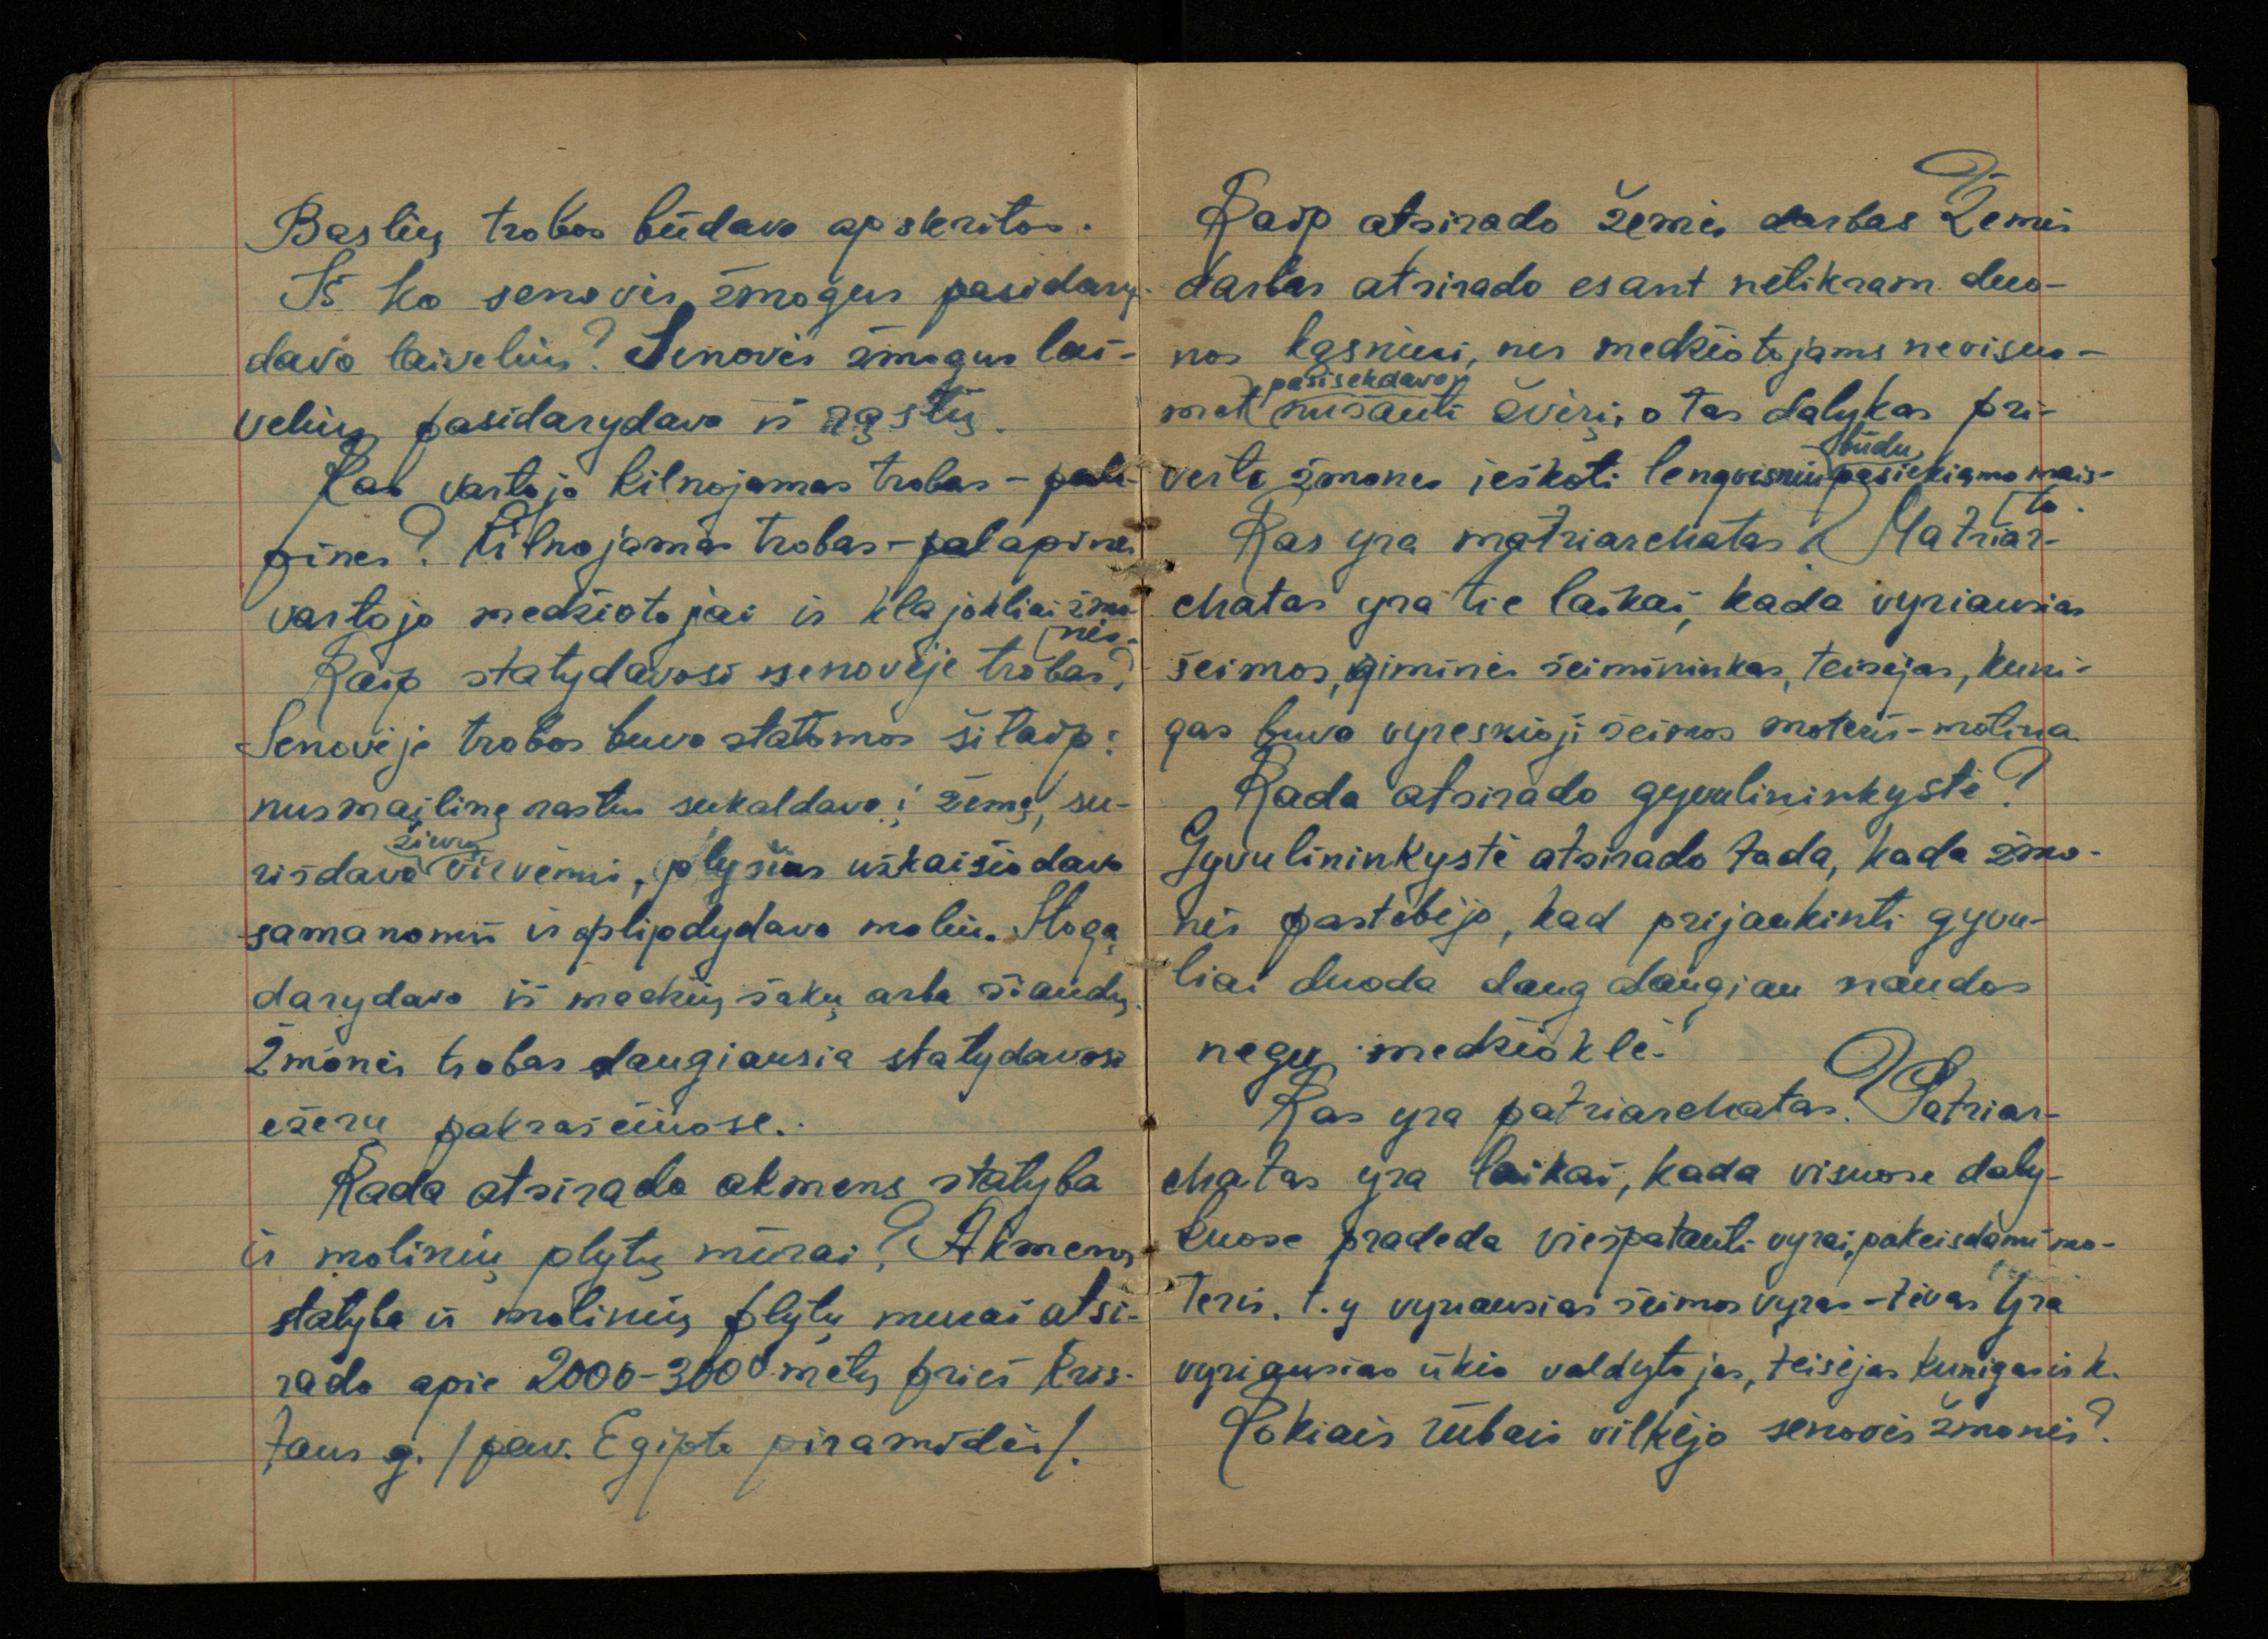 Baslių trobos būdavo apskritos.
Iš ko senovės žmogus pasidary-
davo laivelius? Senovės žmogus lai-
velius pasidarydavo iš ąąstų.
Kas vartojo kilnojamas trobas - pala-
pines? Kilnojamas trobas - palapines
vartojo medžiotojai ir klajokliai žmo-
nės.
Kaip statydavosi senovėje trobas?
Senovėje trobos buvo statomos šitaip:
nusmailinę rastus sukaldavo į žemę, su-
rišdavo žievių virvėmi, plyšius užkaišiodavo
samanomis ir aplipdydavo moliu. Stogą
darydavo iš medžių šakų arba šiaudų.
Žmonės trobas daugiausia statydavosi
ežeru pakraščiuose.
Kada atsirado akmens statyba
ir molinių plytų mūrai? Akmens
statyba ir molinių plytų murai atsi-
rado apie 2000-3000 metų prieš Kris-
taus g. /pav. Egipto piramidės/.
Kaip atsirado žemės darbas? Žemės
darbas atsirado esant netikram duo-
nos kąsniui, nes medžiotojams nevisuo-
met pasisekdavo nušauti žvėrį, o tas dalykas pri-
vertė žmones ieškoti lengvesniu būdu pasiekiamo mais-
to.
Kas yra matriarchatas? Matriar-
chatas yra tie laikai, kada vyriausias
šeimos, giminės šeimininkas, teisėjas, kuni-
gas buvo vyresnioji šeimos moteris-motina
Kada atsirado gyvulininkystė?
Gyvulininkystė atsirado tada, kada žmo-
nės pastebėjo, kad prijaukinti gyvu-
liai duoda daug daugiau naudos
negu medžioklė.
Kas yra patriarchatas? Patriar-
chatas yra laikai, kada visuose daly-
kuose pradeda viešpatauti vyrai, pakeisdami mo-
teris. t.y vyriausias šeimos vyras - tėvas yra
vyriausias ūkio valdytojas, teisėjas kunigas ir k.
Kokiais rūbais vilkėjo senovės žmonės?